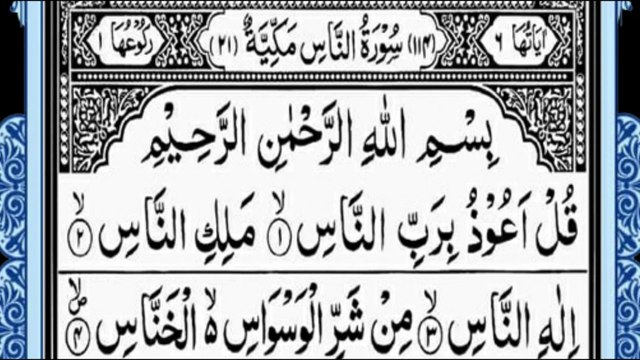 اٰيَاتُهَا ٦ (١١٤) سُوْرَةُ النَّاسِ مَكِّيَّةٌ (٢١) رُكُوْعُهَا ١
بِسْمِ اللّٰهِ الرَّحْمٰنِ الرَّحِيْمِ
قُلْ اَعُوْذُ بِرَبِّ النَّاسِ ۙ‏﴿۱﴾ مَلِكِ النَّاسِ ۙ‏﴿۲﴾
اِلٰهِ النَّاسِ ۙ‏﴿۳﴾ مِنْ شَرِّ الْوَسْوَاسِ ۙ۬ الْخَنَّاسِ ۪ۙ‏﴿۴﴾